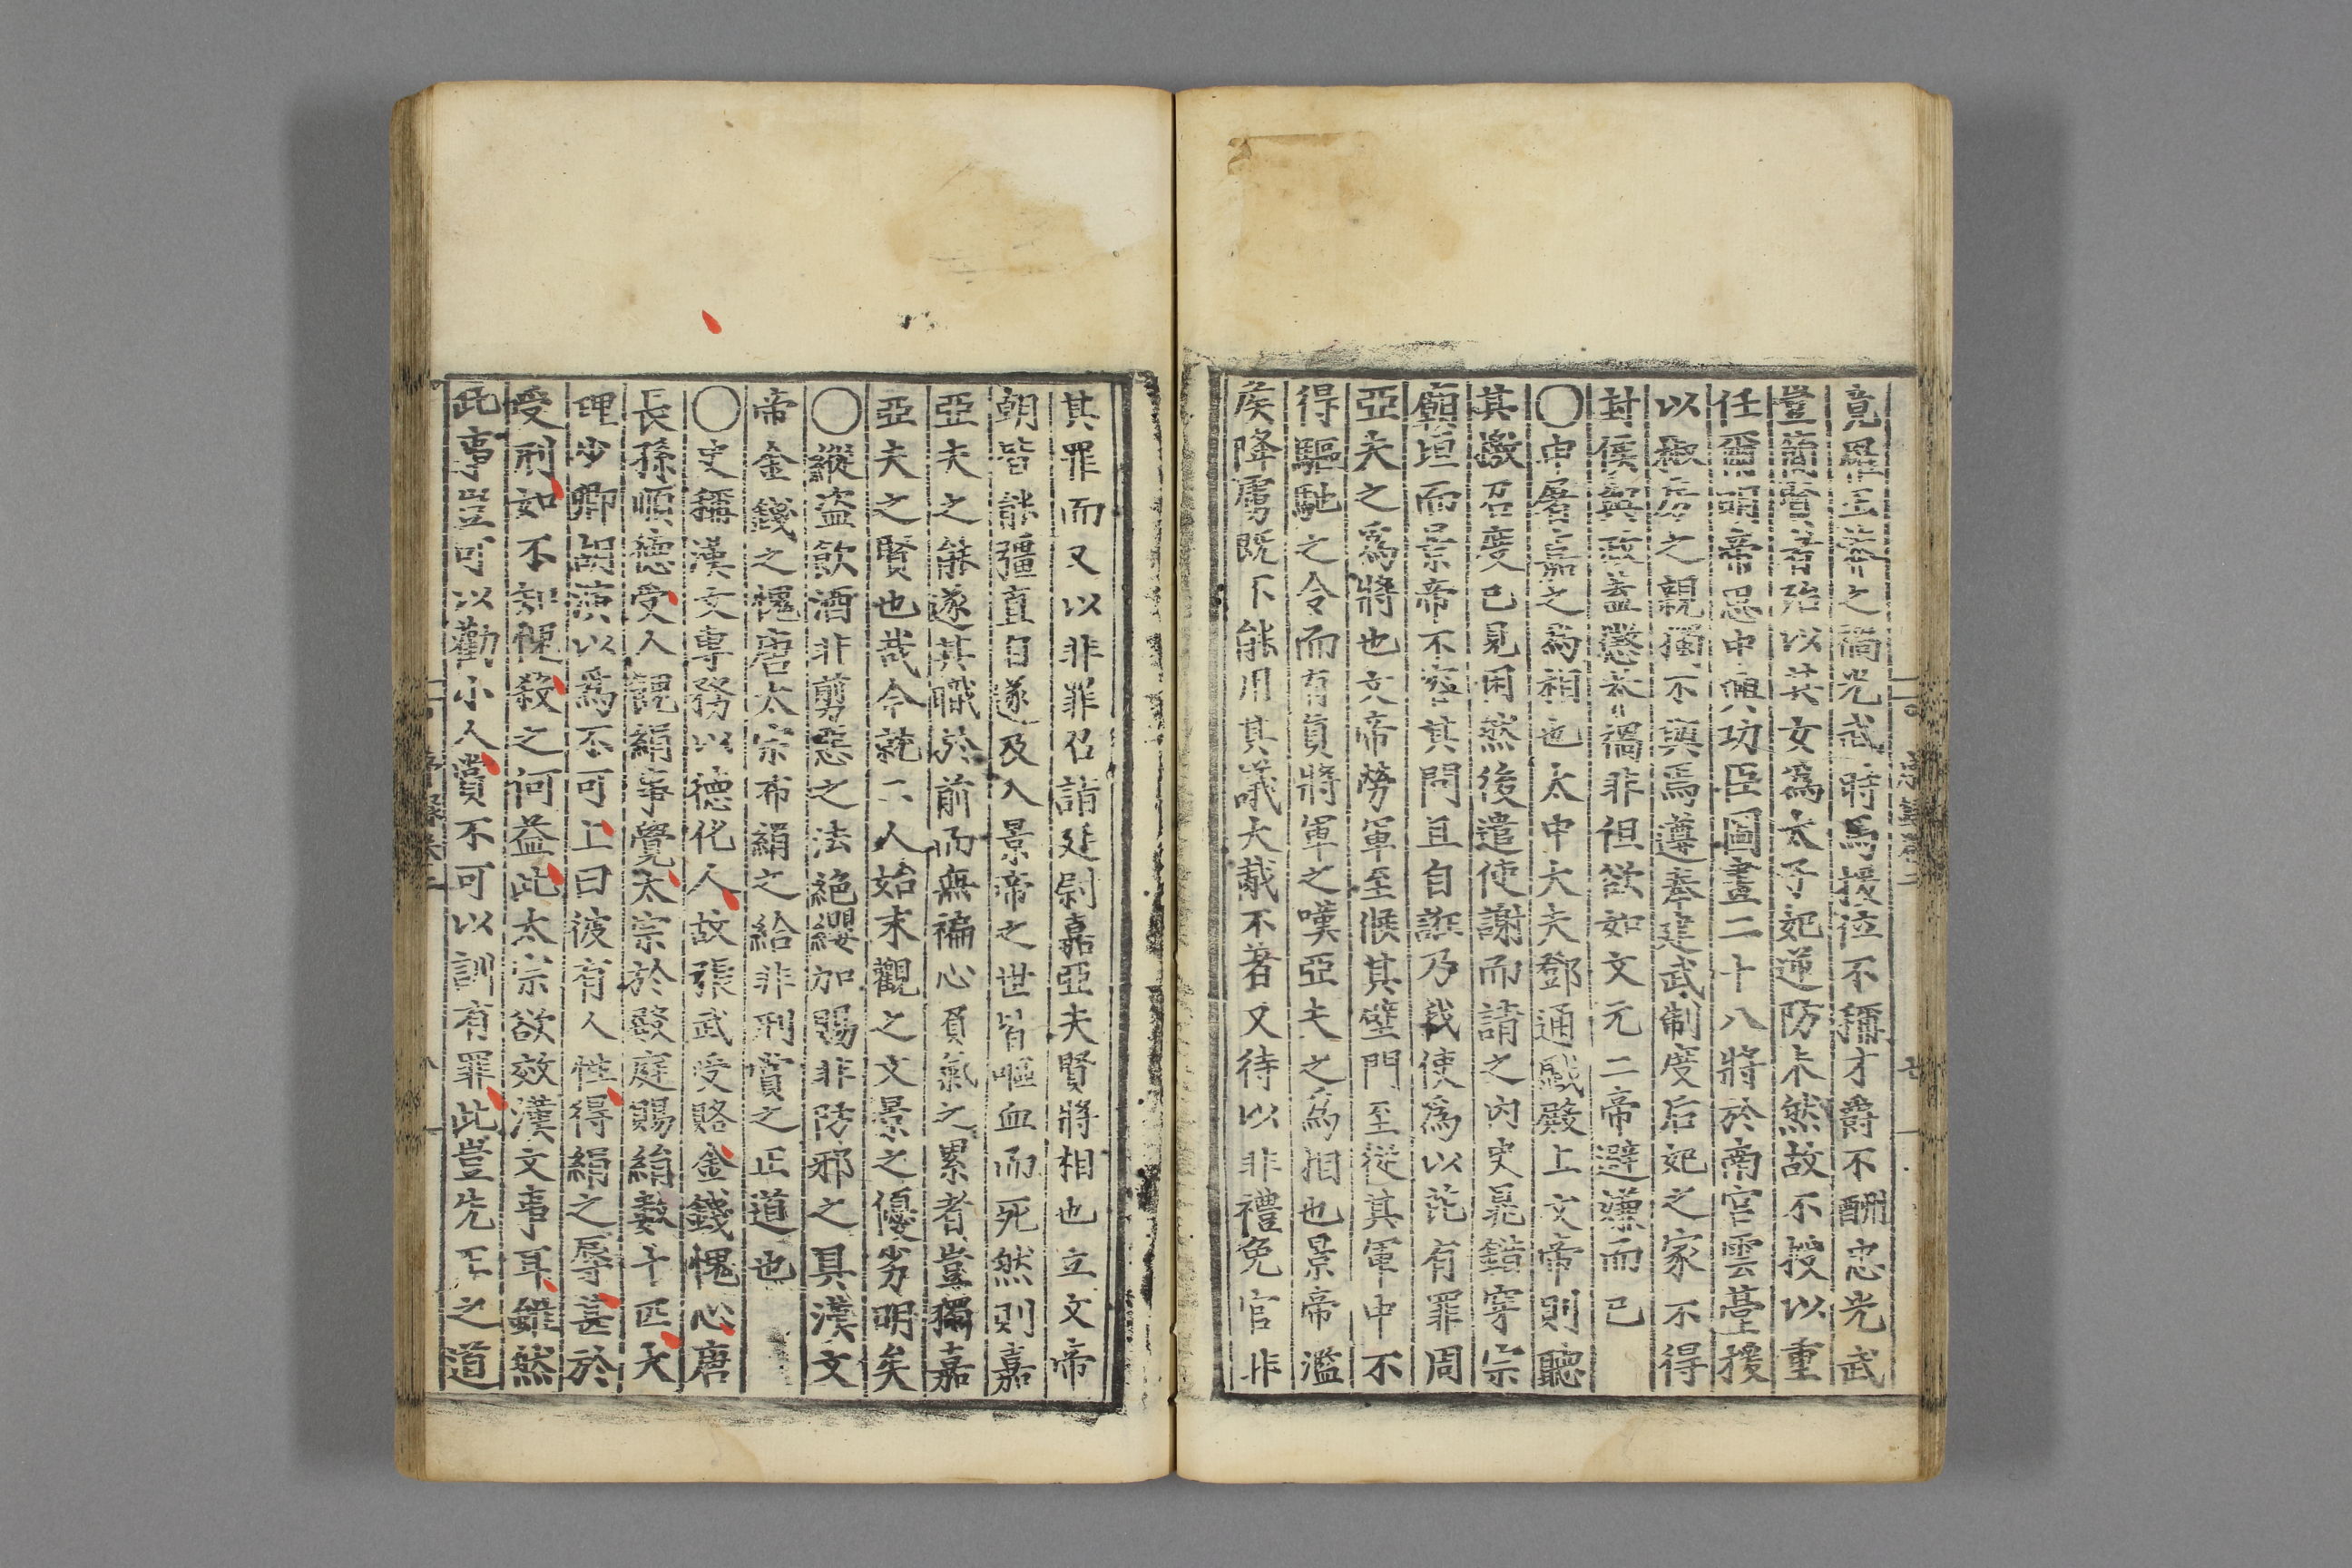 竟罹王莽之禍光武時馬援位不稱才爵不酬忠光武
豈薄賢者殆以其女爲太子妃逆防未然故不授以重
任爾明帝思中興功臣圖畫二十八將於南宮雲臺援
以椒房之親獨不與焉遵奉建武制度后妃之家不得
封侯與政蓋懲莽禍非但欲如文元二帝避嫌而已
〇申屠嘉之爲相也太中大夫鄧通戲殿上文帝則聽
其檄召度已見困然後遣使謝而請之內史晁錯穿宗
廟垣而景帝不容其問且自詭乃我使爲以詫有罪周
亞夫之爲將也文帝勞軍至候其壁門至從其軍中不
得驅馳之令而有眞將軍之嘆亞夫之爲相也景帝濫
侯降虜旣不能用其議大胾不著又待以非禮免官非
其罪而又以非罪召詣廷尉嘉亞夫賢將相也立文帝
朝皆能彊直自遂及入景帝之世皆嘔血而死然則嘉
亞夫之能遂其職於前而無褊心負氣之累者豈獨嘉
亞夫之賢也哉今就二人始末觀之文景之優劣明矣
〇縱盜飮酒非剪惡之法絶纓加賜非防邪之具漢文
帝金錢之愧唐太宗布絹之給非刑賞之正道也
〇史稱漢文專務以德化人故張武受賂金錢愧心唐
長孫順德受人饋絹事覺太宗於殿庭賜絹數十匹大
理少卿胡演以爲不可上曰彼有人性得絹之辱甚於
受刑如不知愧殺之何益此太宗欲效漢文事耳雖然
此事豈可以勸小人賞不可以訓有罪此豈先王之道